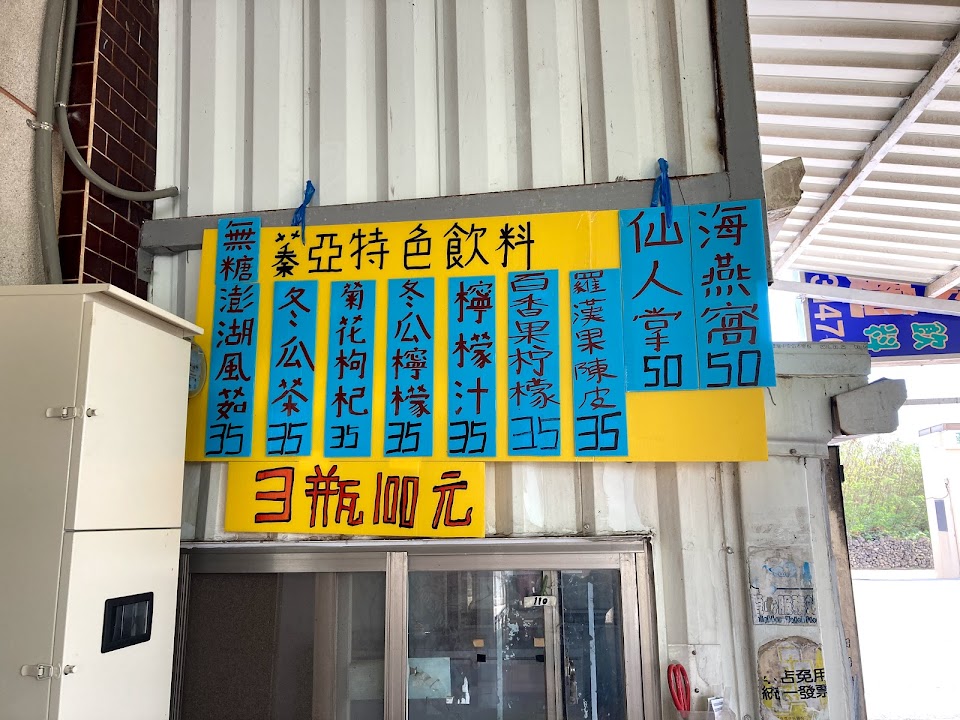 蓁亞特色飲料
無糖澎湖風茹
35
冬瓜茶
35
菊花枸杞
35
冬瓜檸檬
35
檸檬汁
35
百香果柠檬
35
羅漢果陳皮
35
仙人掌
50
海燕窩
50
3瓶100元
飲料
47
110
占免用
統一發票